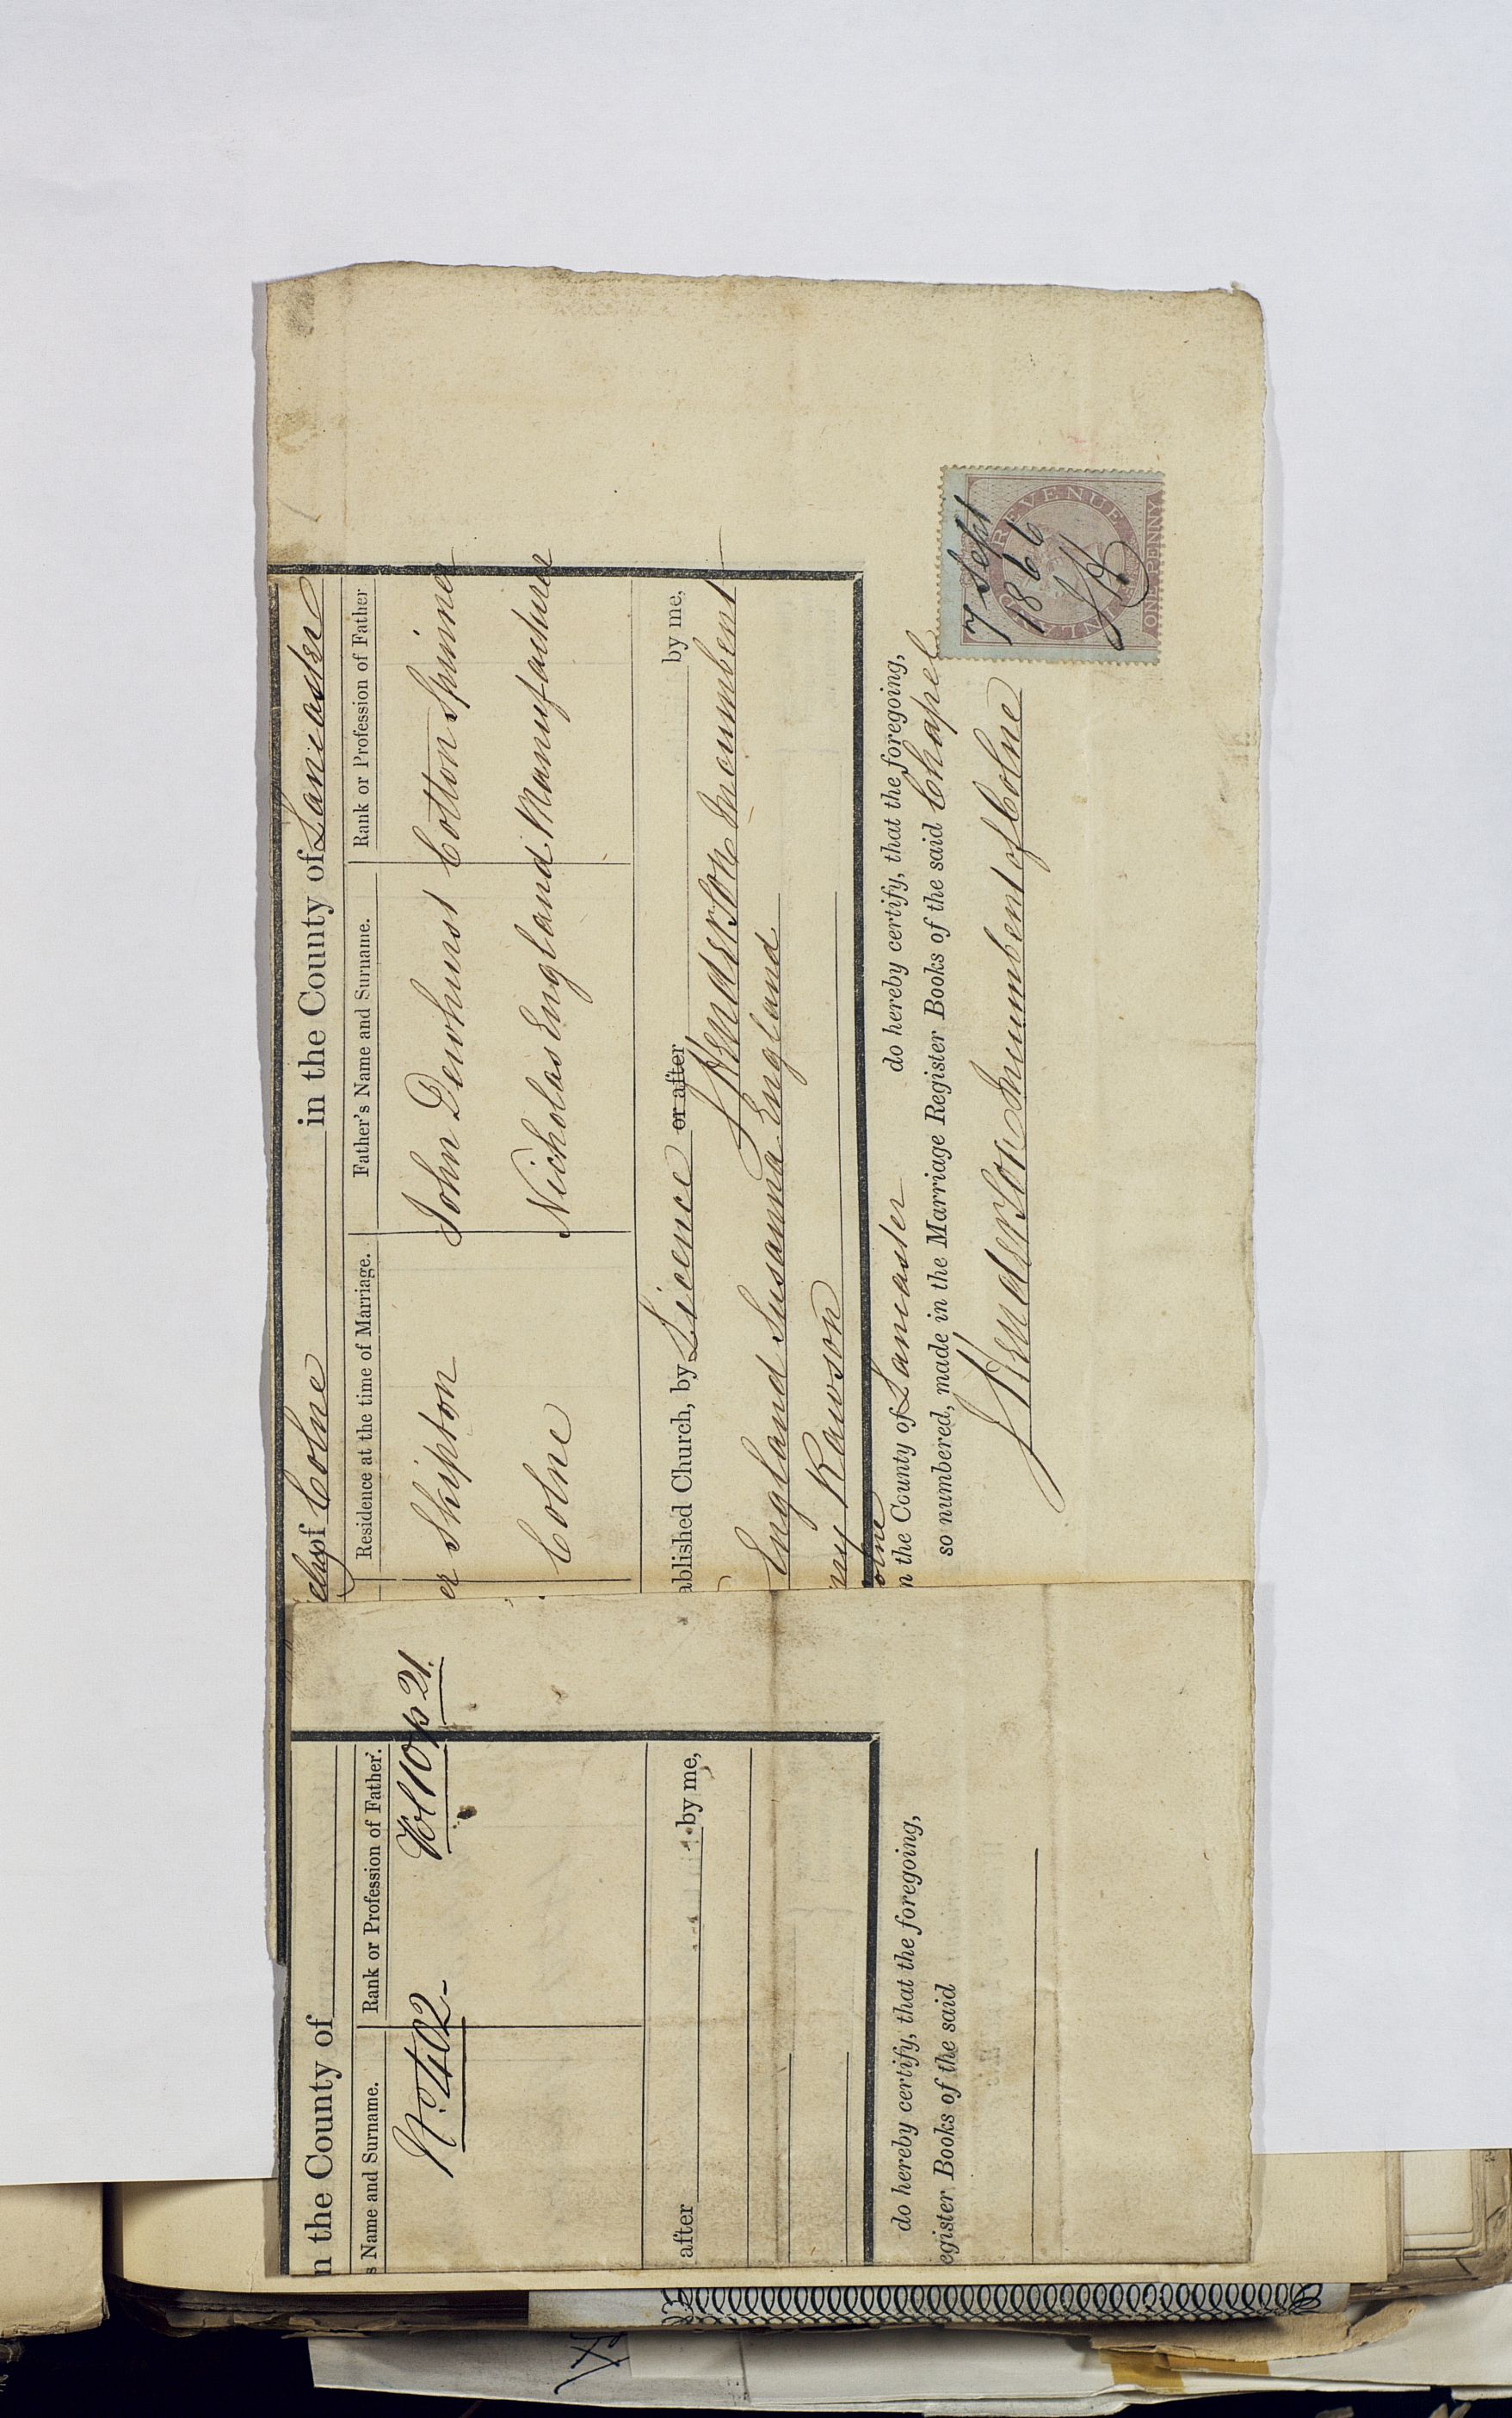 elry of Colne in the County of Lancaster
Residence at the time of Marriage. Father's Name and Surname. Rank or Profession of Father
er Skipton John Dewhurst Cotton Spinner
Colne Nicholas England Manufacturer
ablished Church, by Licence or after by me,
J Henderson Incumbent
England Susanna England
ny Rawson
olne
n the County of Lancaster do hereby certify, that the foregoing,
so numbered, made in the Marriage Register Books of the said Chapel
J Henderson Incumbent of Colne
7 Sept
1866
JH
INLAND REVENUE
ONE PENNY
n the County of
s Name and Surname. Rank or Profession of Father.
No. 402- Vol 10 p 21.
after by me,
do hereby certify, that the foregoing,
egister Books of the said